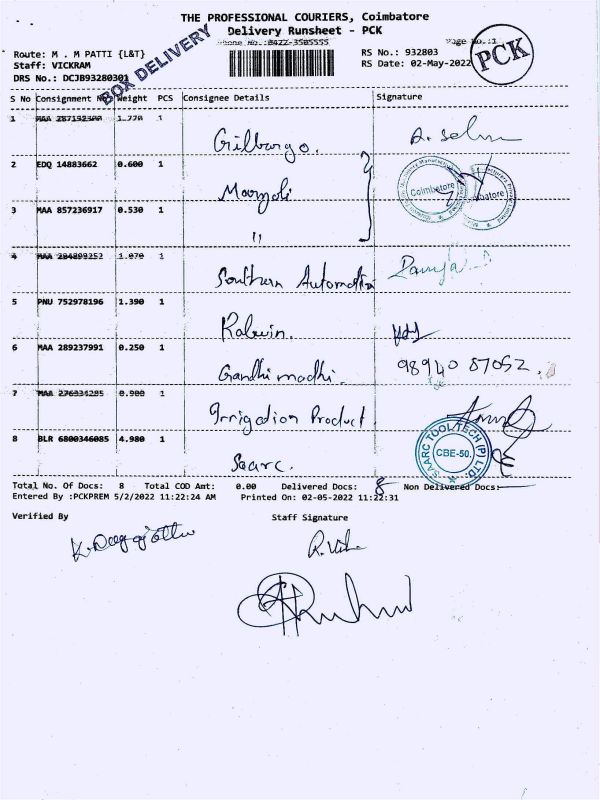 THE PROFESSIONAL COURIERS, Coimbatore
Delivery Runsheet - PCK
Phone No.:0422-3505555
Page No.:1
PCK
Route: M . M PATTI {L&T}
RS No.: 932803
Staff: VICKRAM
RS Date: 02-May-2022
DRS No.: DCJB93280301
BOX DELIVERY
S No Consignment No Weight PCS Consignee Details Signature
1 MAA 287192300 1.770 1
Gilbargo. A. Selm
2 EDQ 14883662 0.600 1
Coimbatore
3 MAA 857236917 0.530 1
"
4 MAA 284899252 1.070 1
Southern Automation Ramya
5 PNU 752978196 1.390 1
Kalwin.
6 MAA 289237991 0.250 1
Gandhi madhi. 98940 87052.
7 MAA 276334285 0.900 1
Irrigation Product
8 BLR 6800346085 4.980 1
Saarc.
SAARC TOOL TECH (P) LTD
CBE-50.
Total No. Of Docs: 8 Total COD Amt: 0.00 Delivered Docs: 8 Non Delivered Docs:
Entered By :PCKPREM 5/2/2022 11:22:24 AM Printed On: 02-05-2022 11:22:31
Verified By Staff Signature